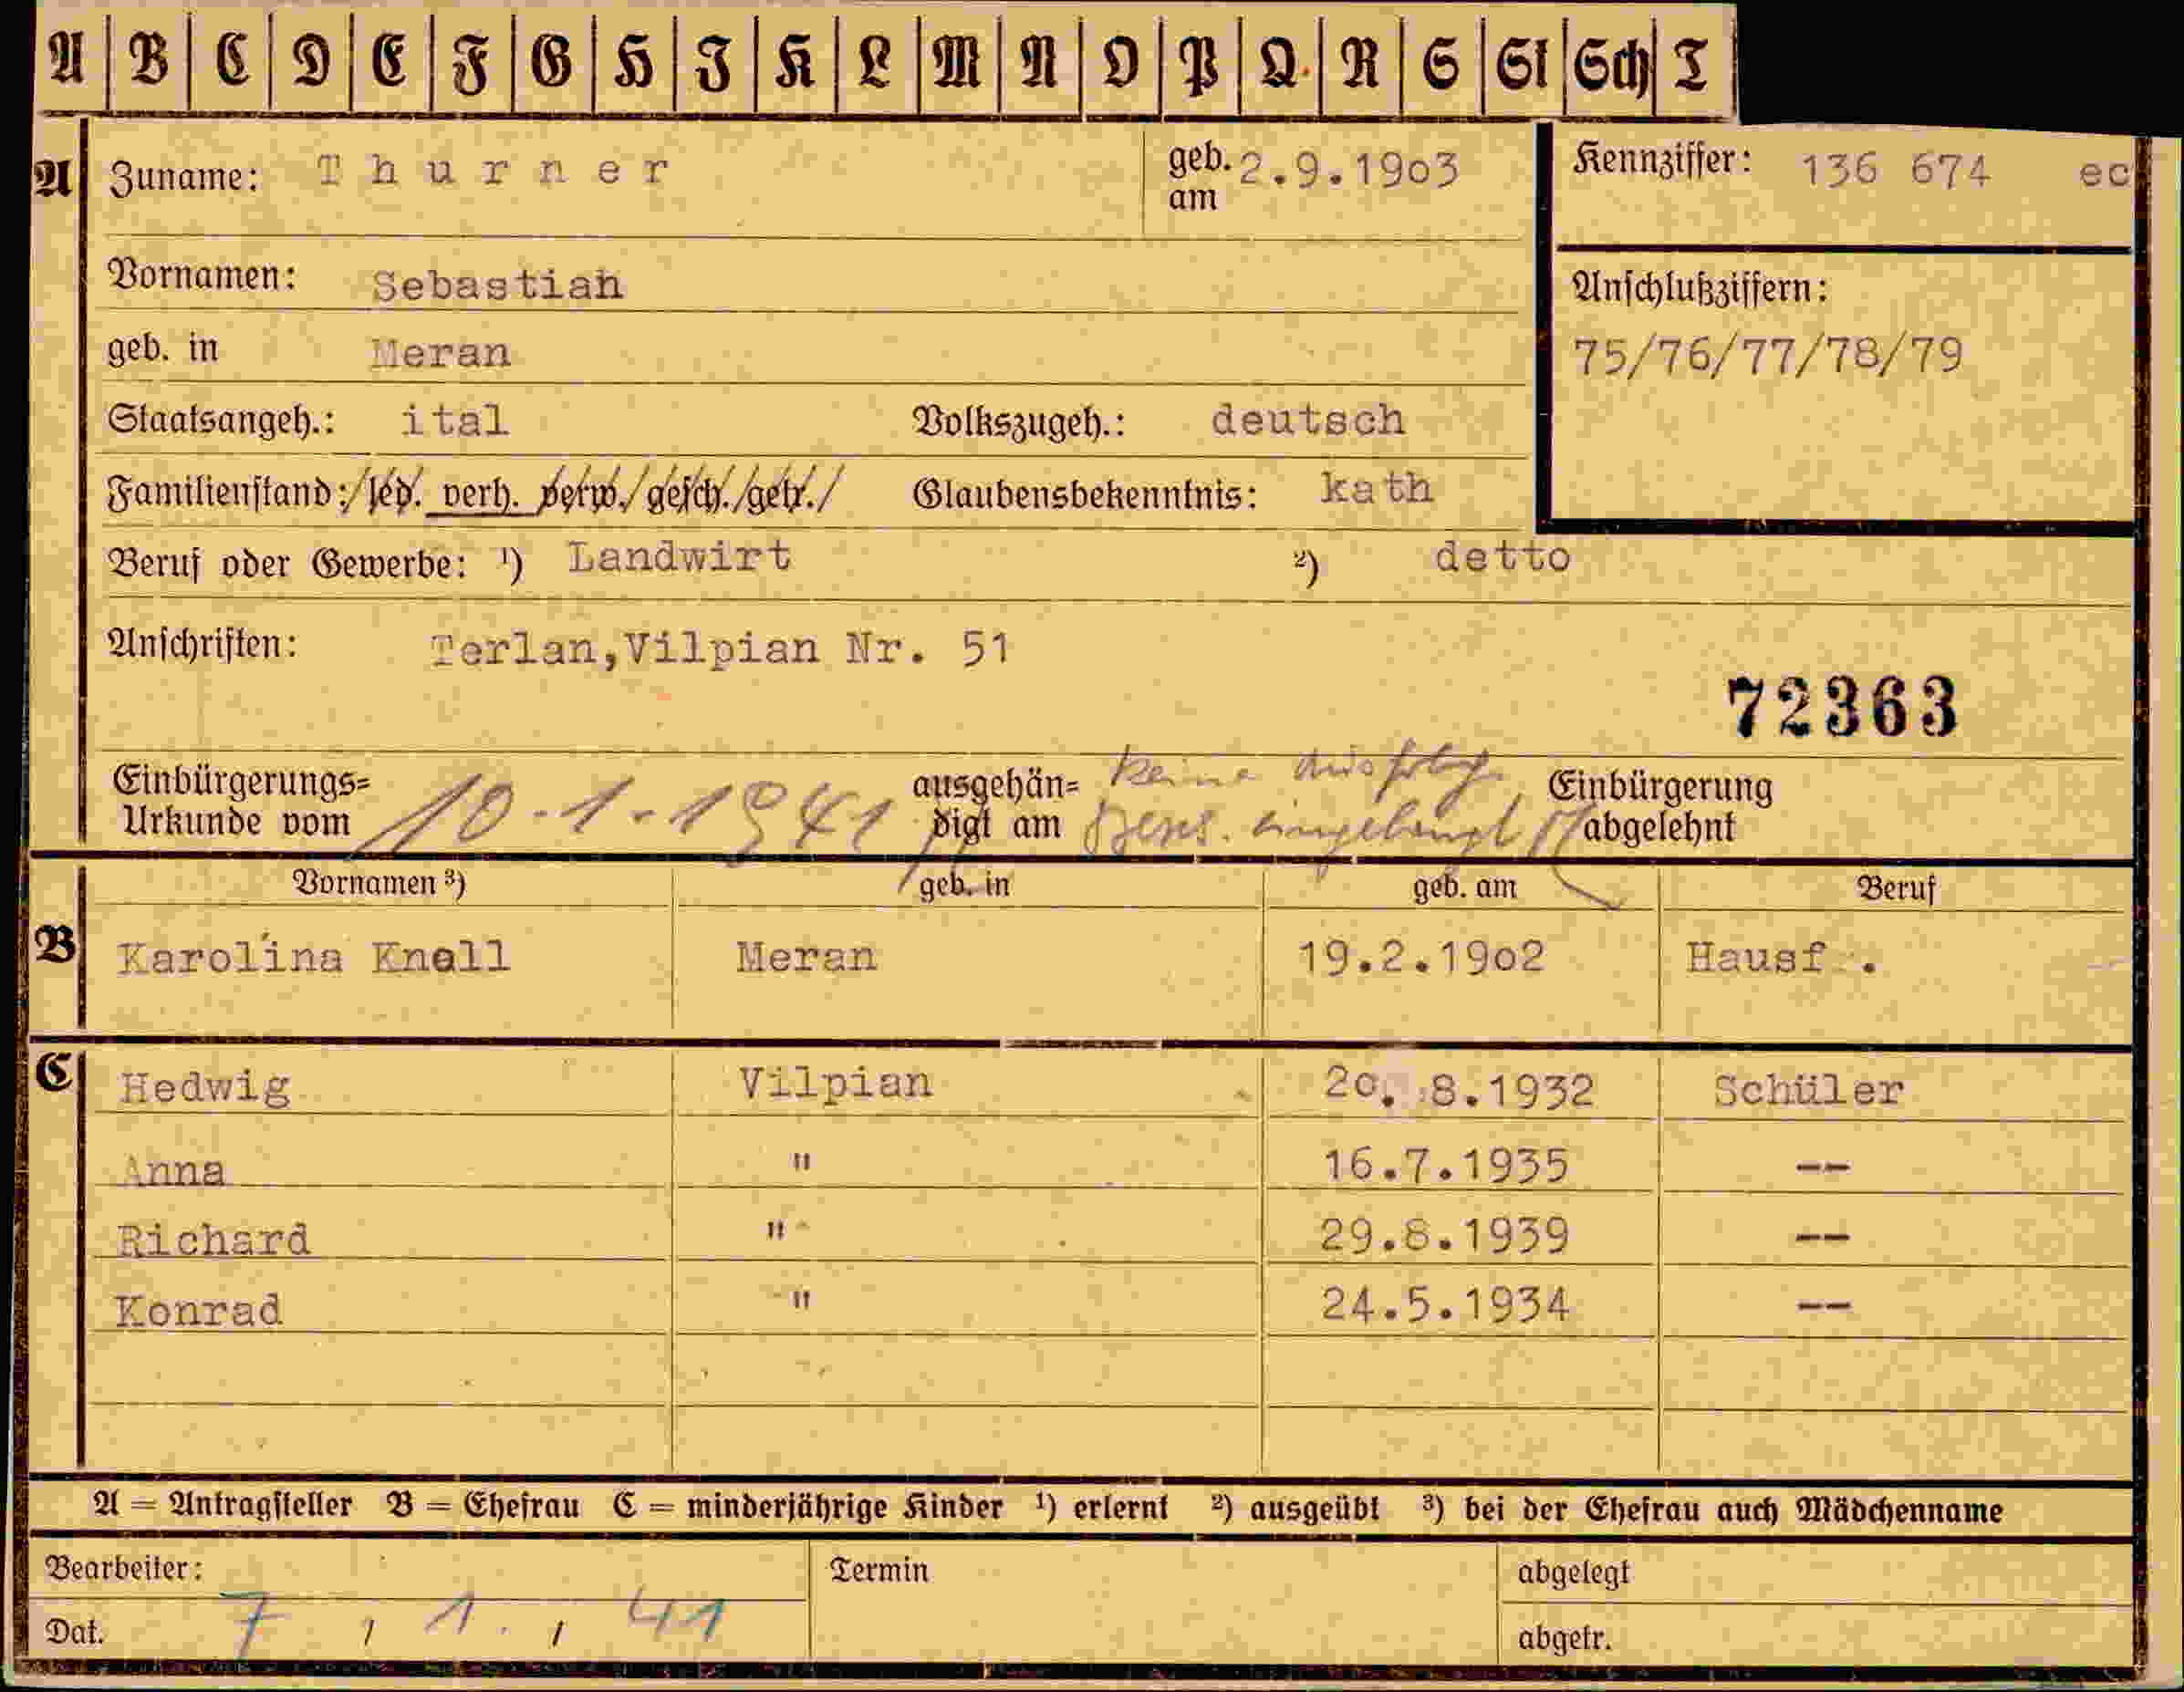 A B C D E F G H I K L M N O P Q R S St Sch T
A Zuname: Thurner geb. am 2.9.1903 Kennziffer: 136 674 ec
Vornamen: Sebastian Anschlußziffern:
geb. in Meran 75/76/77/78/79
Staatsangeh.: ital Volkszugeh.: deutsch
Familienstand: led. verh. verw. gesch. getr. Glaubensbekenntnis: kath
Beruf oder Gewerbe: ¹) Landwirt ²) detto
Anschriften: Terlan,Vilpian Nr. 51
72363
Einbürgerungs= ausgehän= keine Einbürgerung
Urkunde vom 10-1-1941 digt am abgelehnt
Vornamen ³) geb. in geb. am Beruf
B Karolina Knoll Meran 19.2.1902 Hausf.
C Hedwig Vilpian 20. 8.1932 Schüler
Anna " 16.7.1935 --
Richard " 29.8.1939 --
Konrad " 24.5.1934 --
A = Antragsteller B = Ehefrau C = minderjährige Kinder ¹) erlernt ²) ausgeübt ³) bei der Ehefrau auch Mädchenname
Bearbeiter: Termin abgelegt
Dat. 7, 1., 41 abgetr.